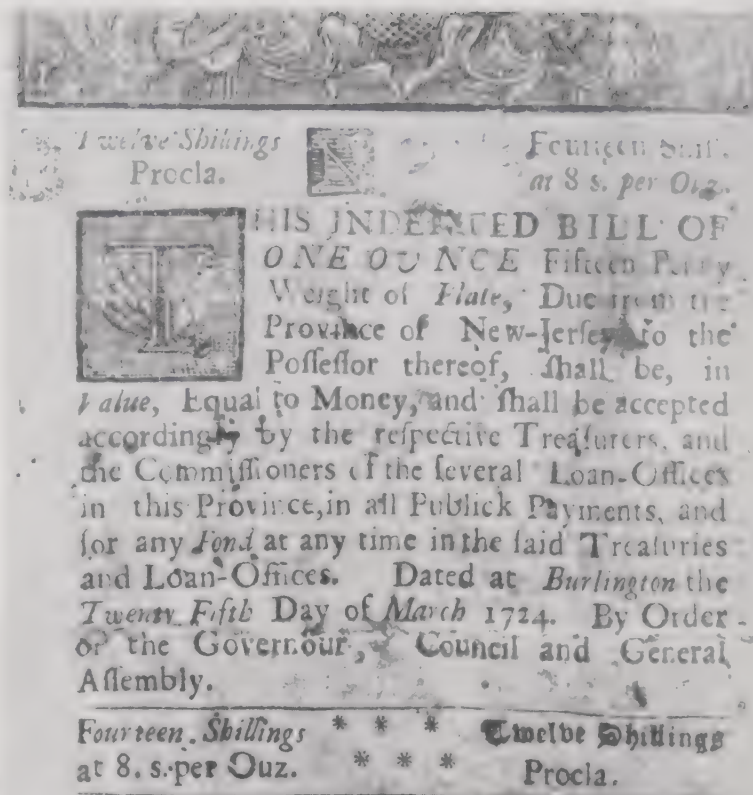 Twelve Shillings
Procla.
Fourteen Shill.
at 8 s. per Ouz.
THIS INDENTED BILL OF
ONE OUNCE Fifteen Penny
Weight of Plate, Due from the
Province of New-Jerſey to the
Poſſeſſor thereof, ſhall be, in
Value, Equal to Money, and ſhall be accepted
accordingly by the reſpective Treaſurers, and
the Commiſſioners of the ſeveral Loan-Offices
in this Province, in all Publick Payments, and
for any Fond at any time in the ſaid Treaſuries
and Loan-Offices. Dated at Burlington the
Twenty Fifth Day of March 1724. By Order
of the Governour, Council and General
Aſſembly.
Fourteen Shillings * * * Twelve Shillings
at 8. s. per Ouz. * * * Procla.